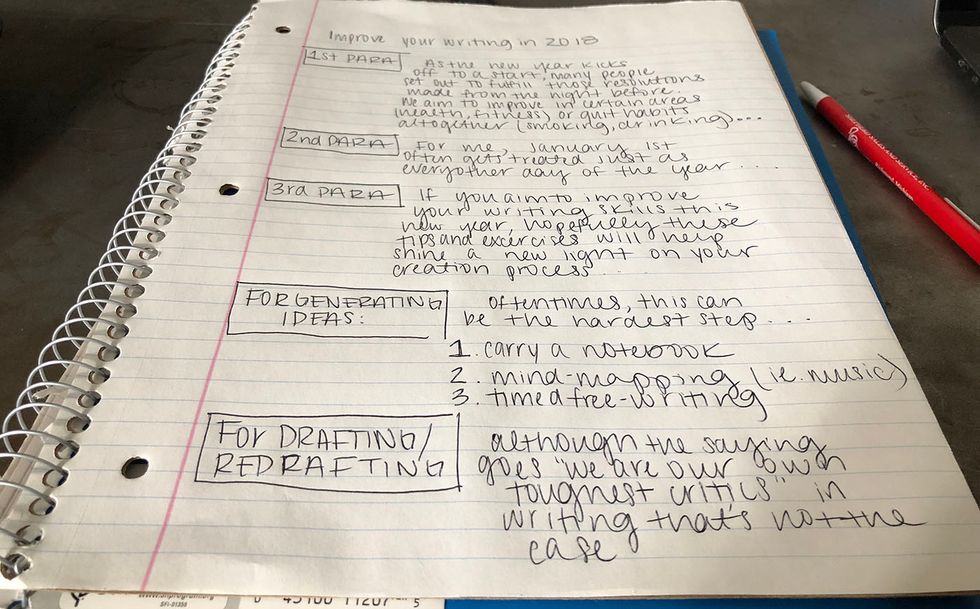 Improve your writing in 2018
1st PARA
As the new year kicks
off to a start, many people
set out to fulfill those resolutions
made from the night before.
We aim to improve in certain areas
(health, fitness) or quit habits
altogether (smoking, drinking)...
2nd PARA
For me, January 1st
often gets treated just as
everyother day of the year....
3rd PARA
If you aim to improve
your writing skills this
new year, hopefully these
tips and exercises will help
shine a new light on your
creation process...
FOR GENERATING
IDEAS:
oftentimes, this can
be the hardest step....
1. carry a notebook
2. mind-mapping (ie. music)
3. timed free-writing
FOR DRAFTING/
REDRAFTING
although the saying
goes "we are our own
toughest critics" in
writing that's not the
case
SFI-01350
0 45100 11207 5